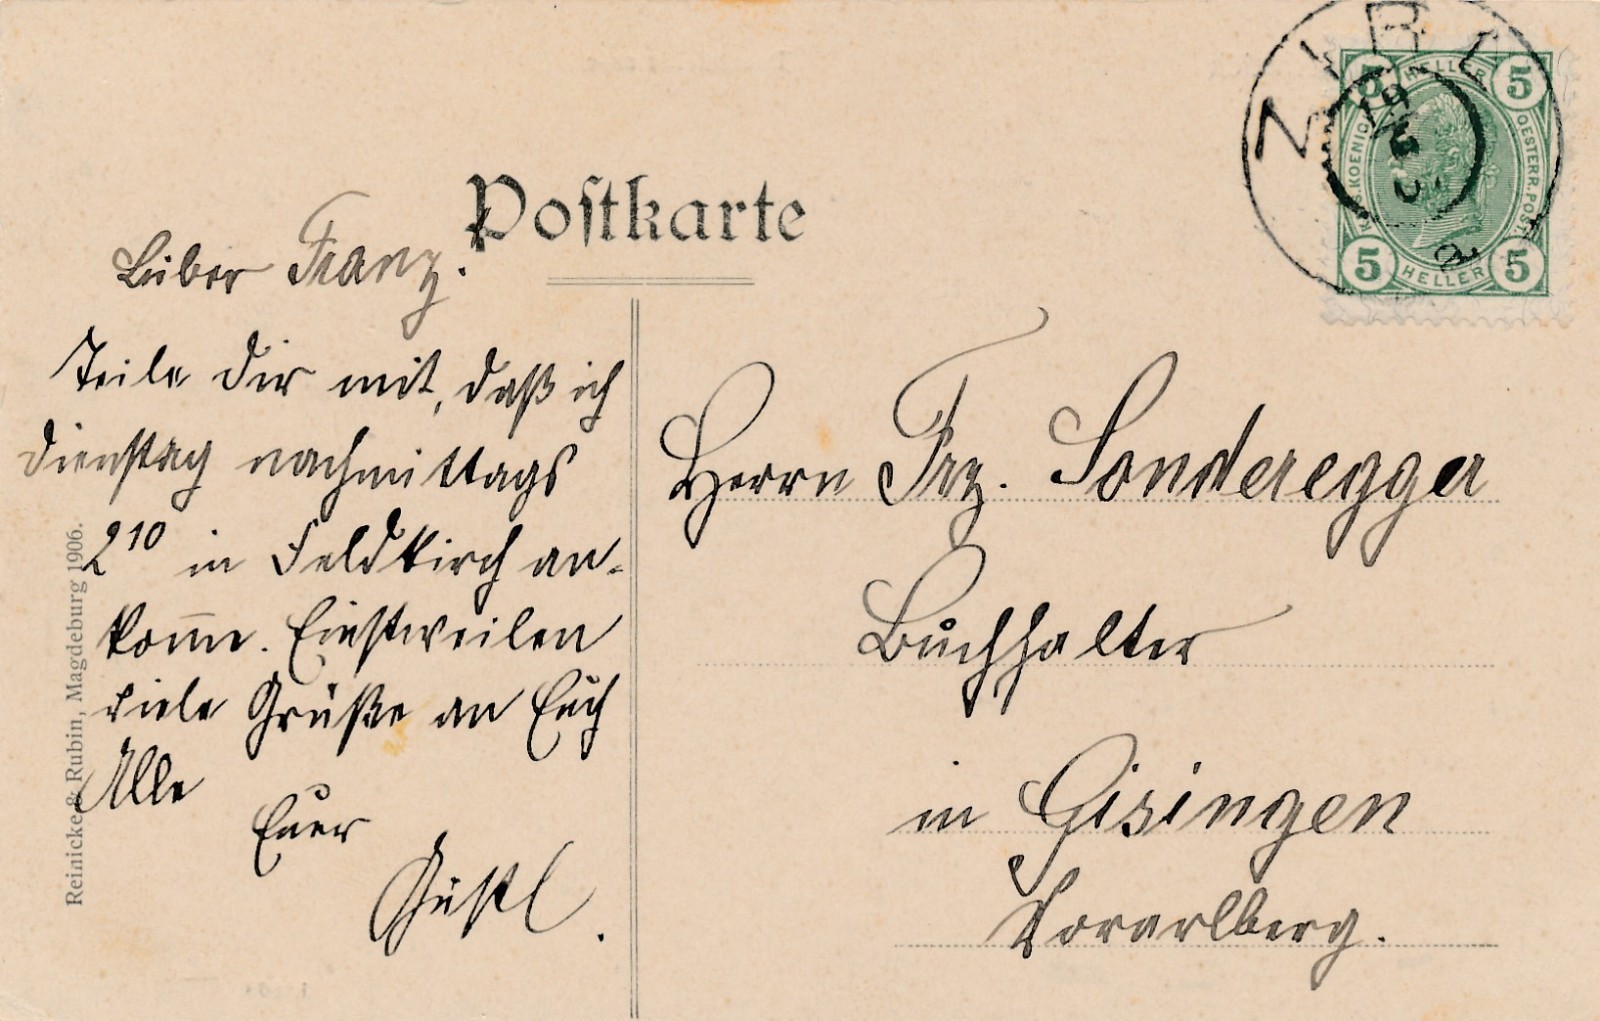 Postkarte
Lieber Franz.
Teile Dir mit, daß ich
Dienstag nachmittags
2¹⁰ in Feldkirch an-
kom̄e. Einstweilen
viele Grüße an Euch
Alle
Euer
Gustl.
Herrn Frz. Sonderegger
Buchhalter
in Gisingen
Vorarlberg.
Reinicke & Rubin, Magdeburg 1906.
ZIRL
5 HELLER 5
K.K. KOENIGL.
OESTERR. POST.
5 HELLER 5